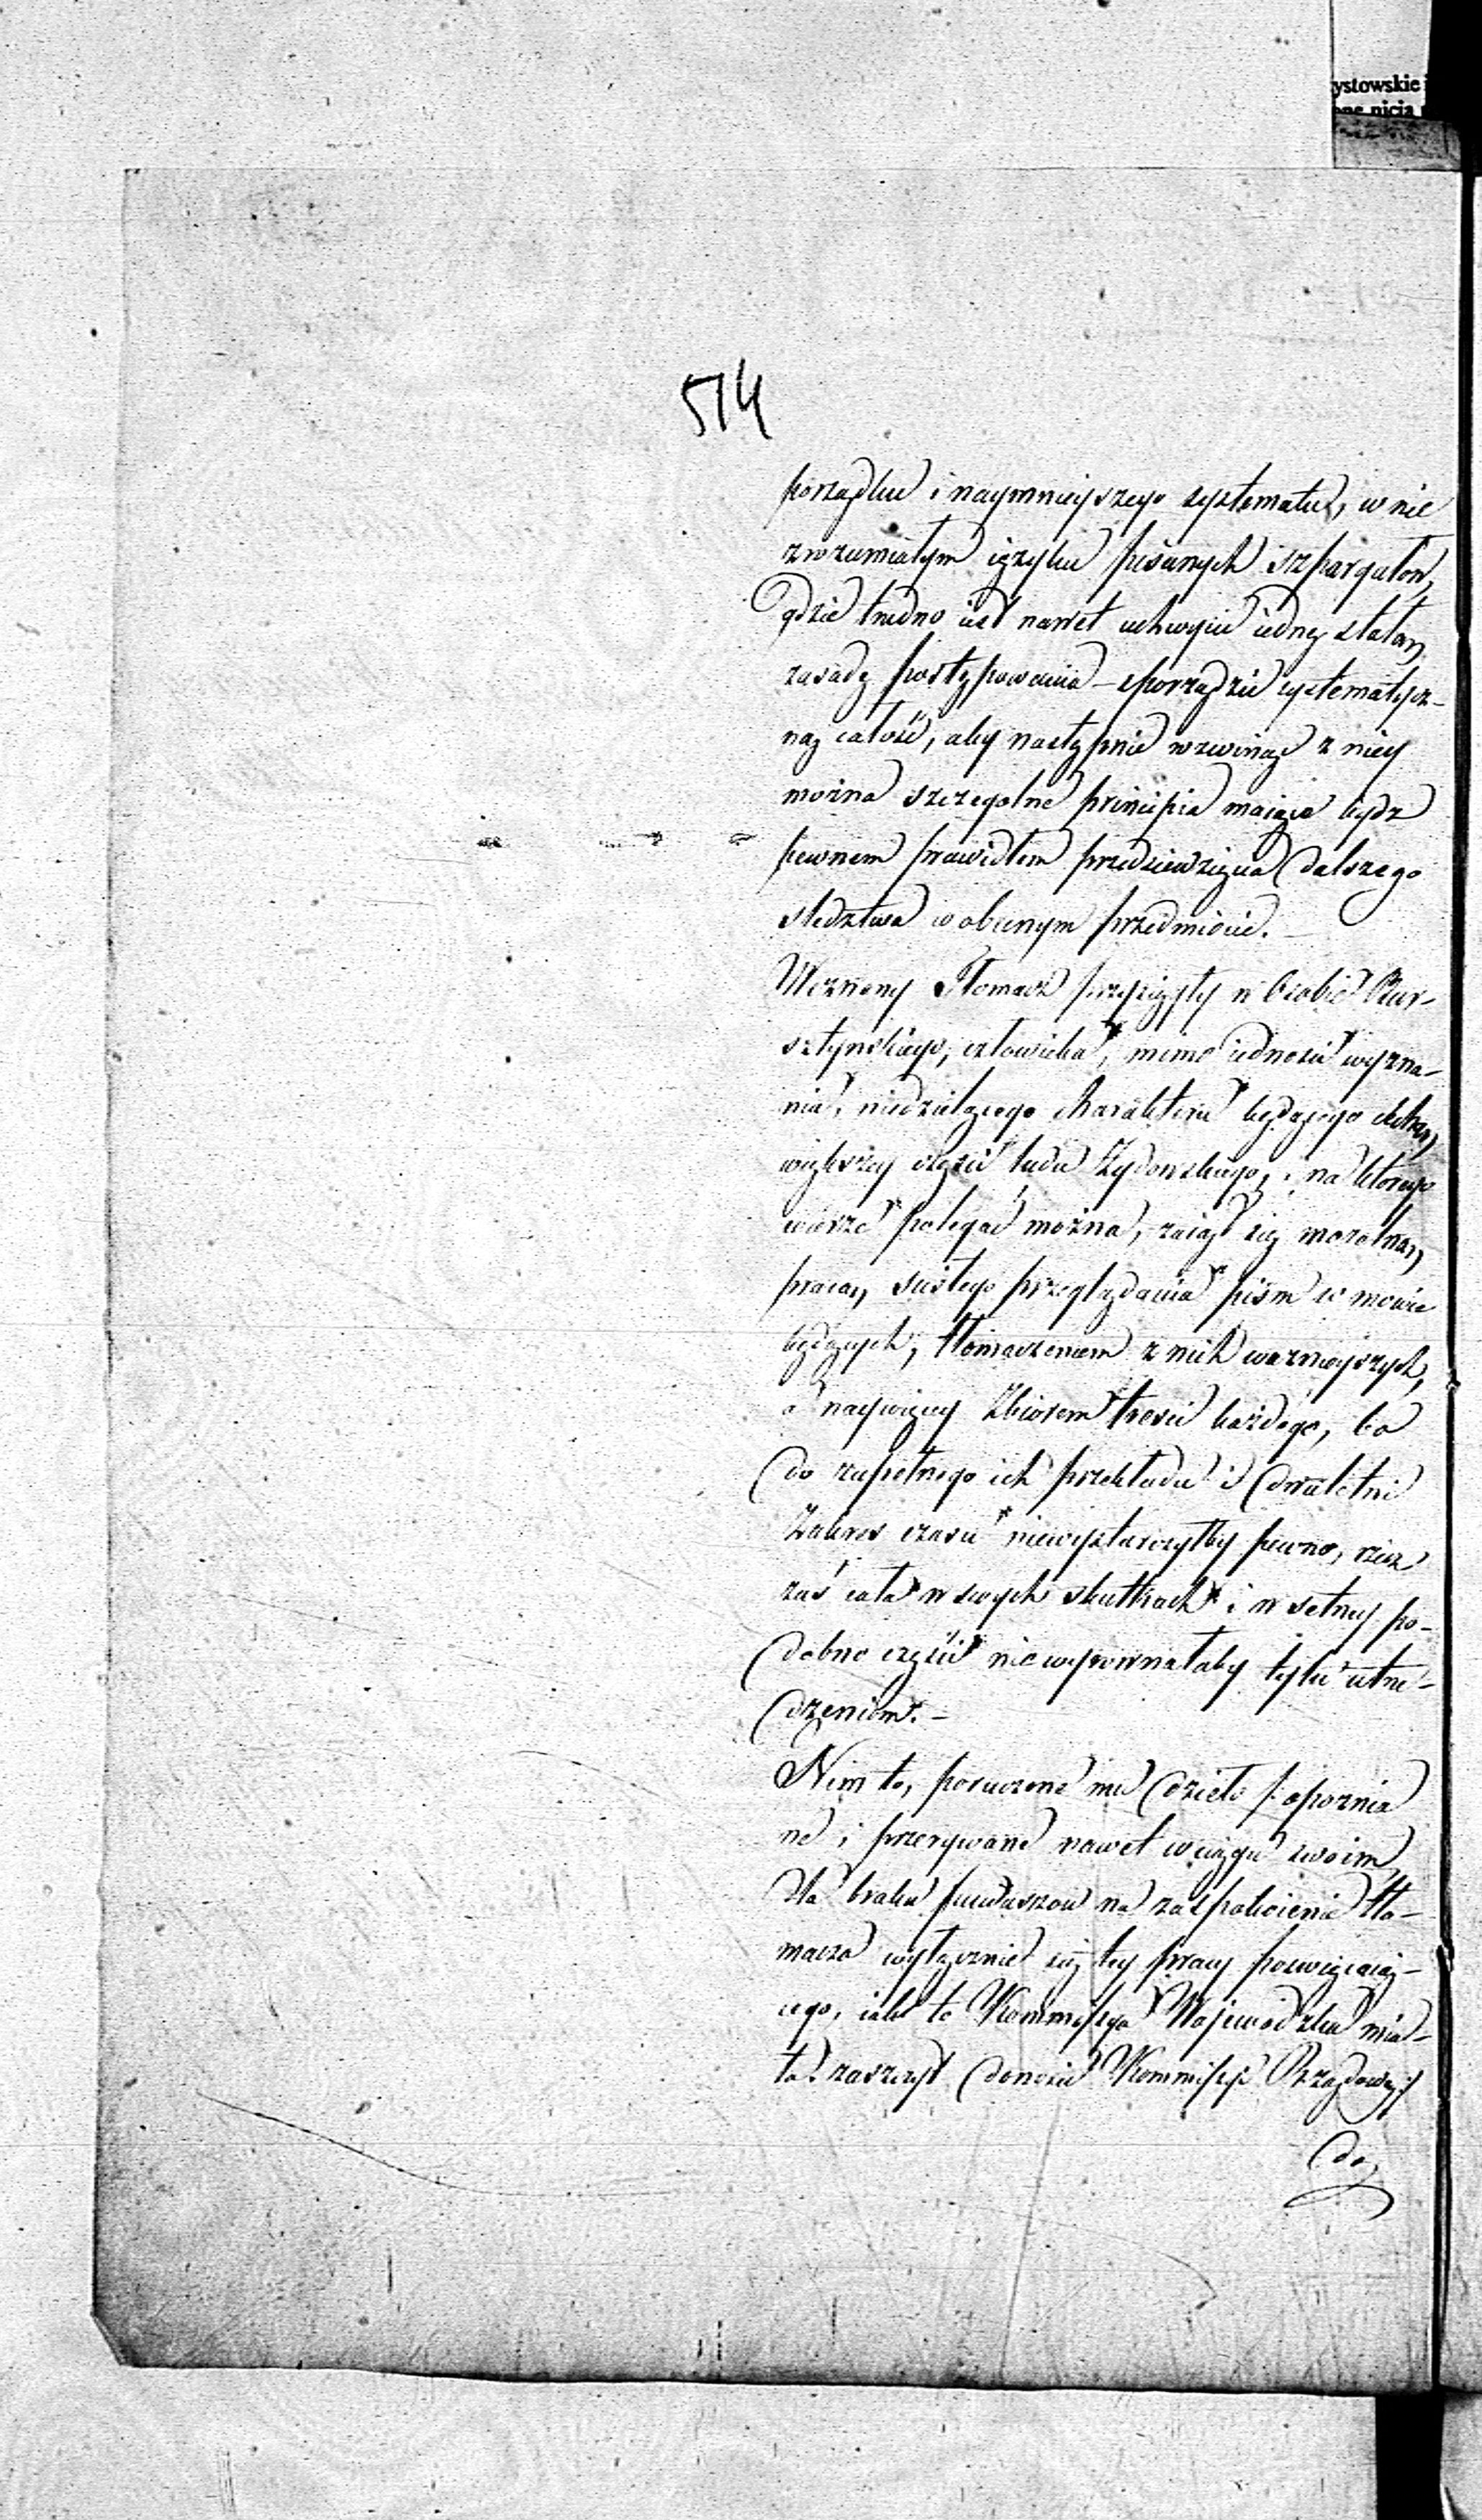 ystowskie i
one nicią
514
porządku i naymnieyszego systematu, w nie
zrozumiałym ięzyku pisanych szpargałow,
gdzie trudno iest nawet uchwycić iedną stałą
zasadę postępowania – sporządzić systematycz-
ną całość, aby następnie rozwinąć z niey
można szczegolne principia maiące bydz
pewnem prawidłem przedsięwzięcia dalszego
sledztwa w obecnym przedmiocie. –
Wezwany Tłomacz przysięgły w osobie Bur-
sztynskiego, człowieka, mimo iednosci wyzna-
nia, niedzielącego charakteru będącego cechą
większey częsci ludu Żydowskiego, i na ktorego
wierze polegać można, zaiął się mozolną
pracą scisłego przeglądania pism w mowie
będących, tłomaczeniem z nich ważnieyszych,
a naywięcey Zbiorem tresci każdego, bo
do zupełnego ich przekładu i dwuletni
Zakres czasu niewystarczyłby pewno, rzecz
zaś cała w swych skutkach i w setney po-
dobno części nie wyrownałaby tylu utru-
dzeniom. –
Nim to, poruczone mu dzieło /: opoznia
ne i przerywane nawet w ciągu swoim,
dla braku funduszow na zaspokoienie tło-
macza wyłącznie się tey pracy poswięcaią-
cego, iak to Kommissya Woiewodzka mia-
ła zaszczyt donosić Kommissyi Rządowey :/
do